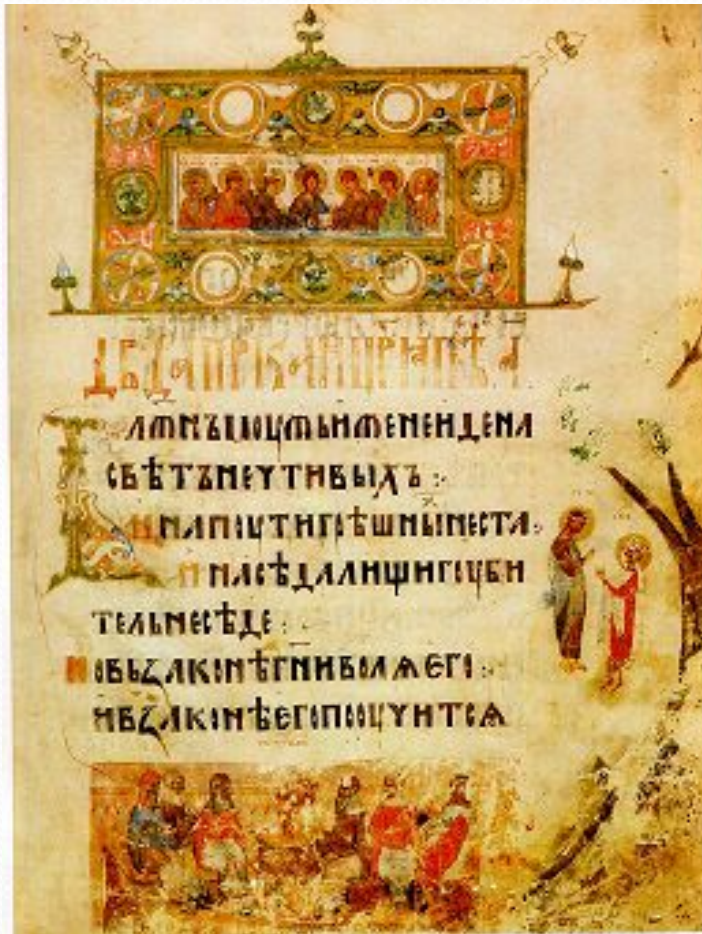 БЛЖНЪМОУЖЬИЖЕНЕИДЕНА
СВѢТЪНЕЧТИВЫХЪ :·
И НАПОУТИГРѢШНЫНЕСТА :·
И НАСѢДАЛИЩИГОУБИ
ТЕЛЬНЕСѢДЕ :·
НОВЬЗАКОНѢГНИВОЛѦЕГО :·
ИВЗАКОНѢЕГОПООУЧИТСѦ